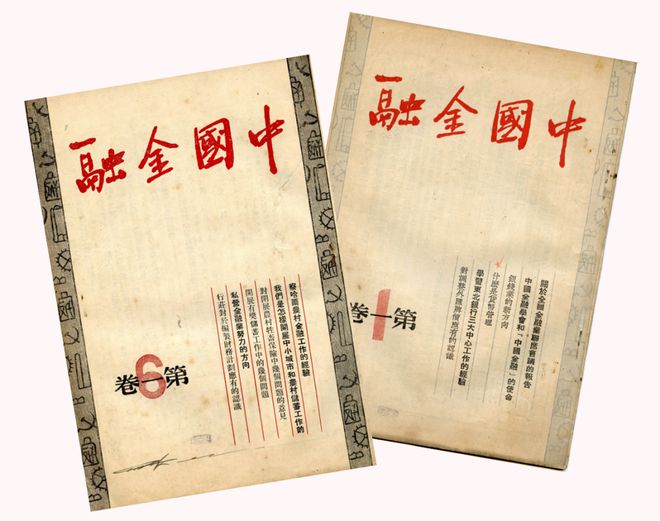 中國金融
察哈爾農村金融工作的經驗
我們是怎樣開展中小城市和農村儲蓄工作的
對開展農村牲畜保險中幾個問題的意見
開展有獎儲蓄工作中的幾個問題
私營金融業努力的方向
行莊對於編製財務計劃應有的認識
第一卷
6
中國金融
關於全國金融業聯席會議的報告
中國金融學會和「中國金融」的使命
銀錢業的新方向
什麼是貨幣管理
學習東北銀行三大中心工作的經驗
對調整外匯牌價應有的認識
第一卷
1